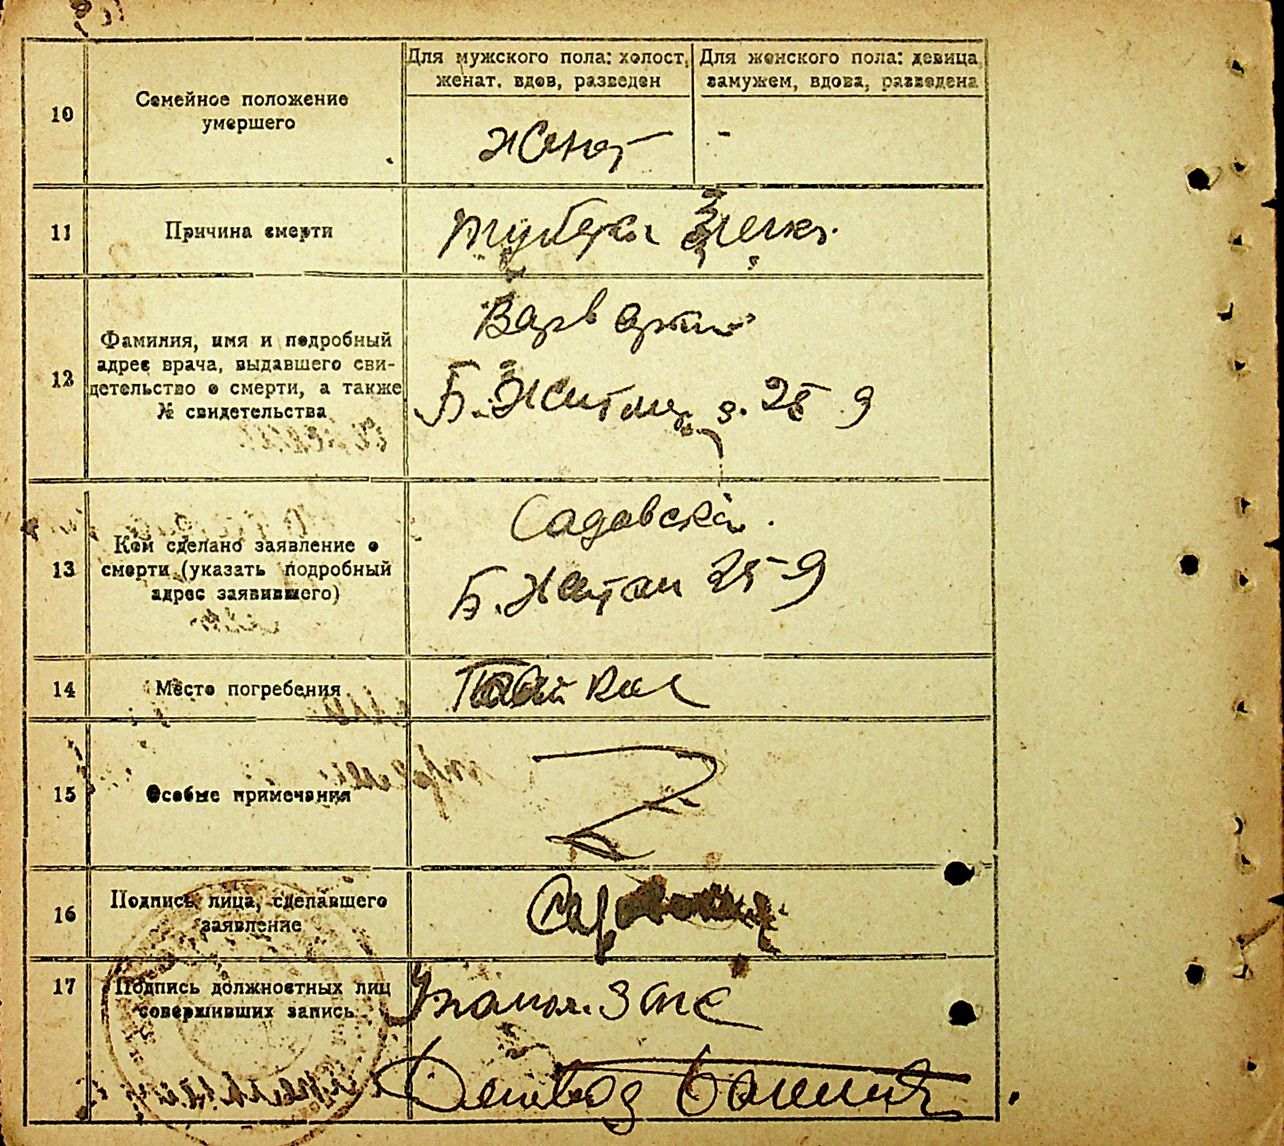 Для мужского пола: холост,
женат, вдов, разведен
Для женского пола: девица
замужем, вдова, разведена
10
Семейное положение
умершего
женат
-
11
Причина смерти
туберкл легких
12
Фамилия, имя и подробный
адрес врача, выдавшего сви-
детельство о смерти, а также
№ свидетельства
Б. Житом 25 9
13
Кем сделано заявление о
смерти (указать подробный
адрес заявившего)
Садовская
Б. Житом 25-9
14
Место погребения
15
Особые примечания
16
Подпись лица, сделавшего
заявление
17
Подпись должностных лиц
совершивших запись